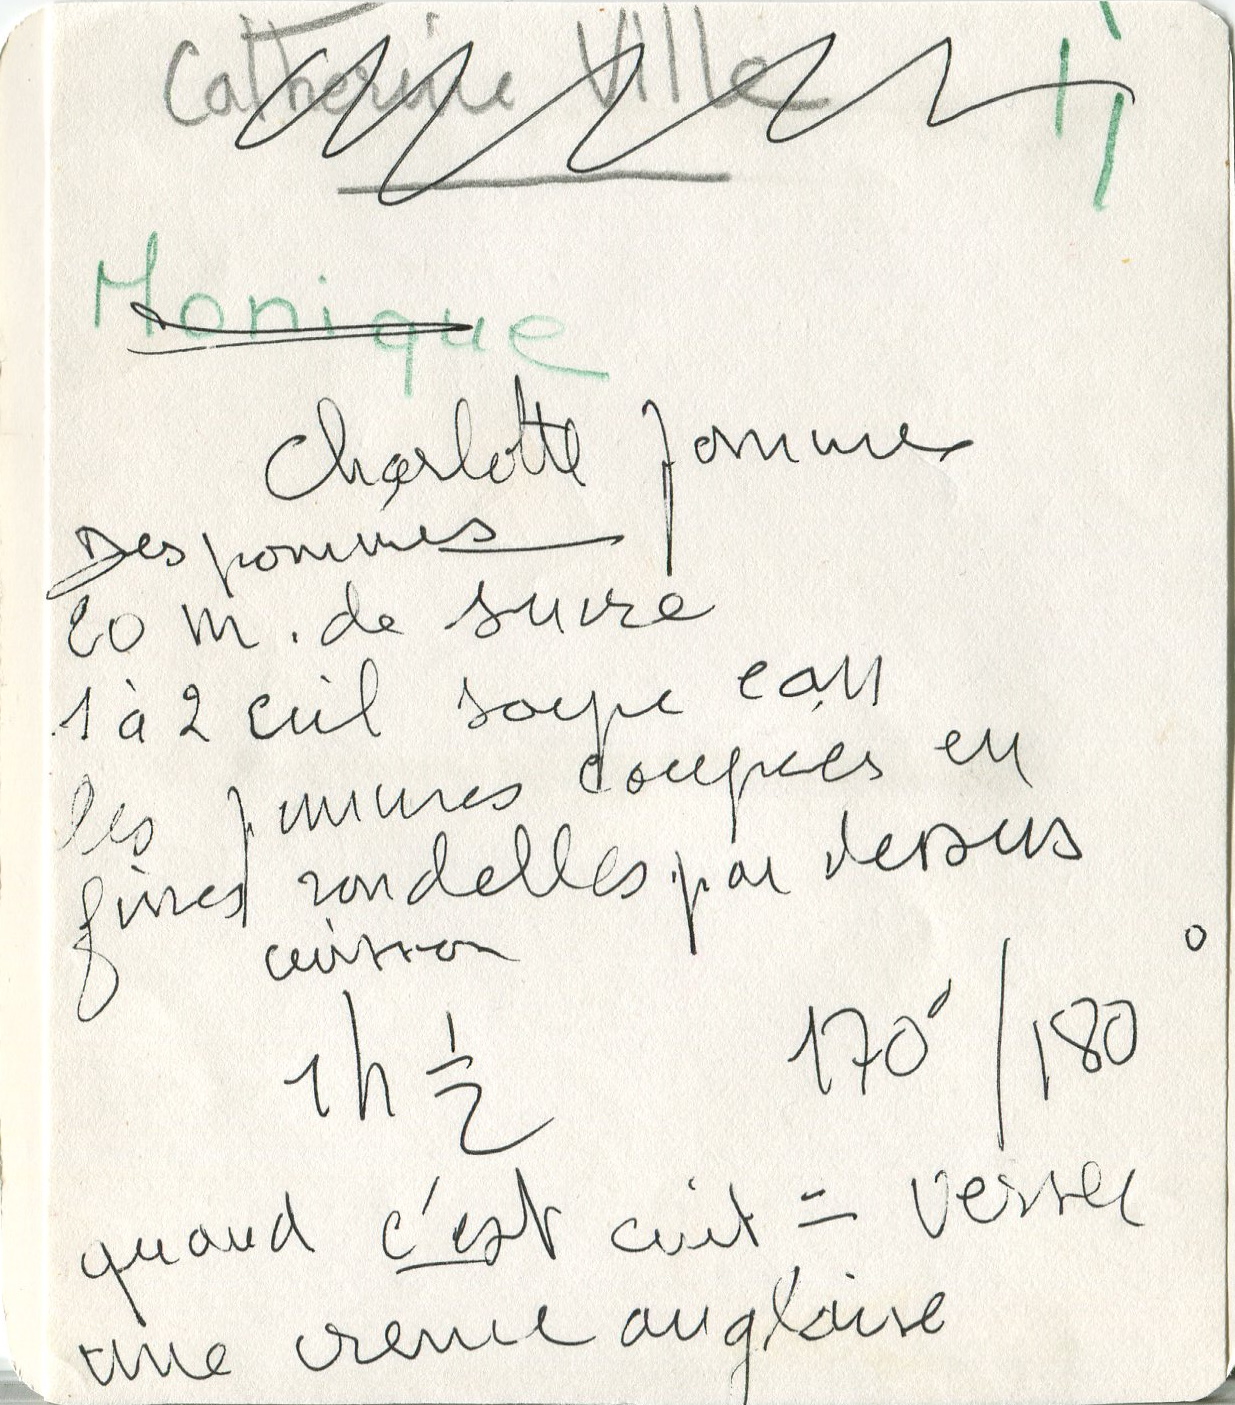 Catherine Ville
Monique
Charlotte pommes
Des pommes
20 m. de sucre
1 à 2 cuil soupe eau
les pommes coupées en
fines rondelles par dessus
cuisson
1h 1/2 170°/180°
quand c'est cuit = verser
une creme anglaise